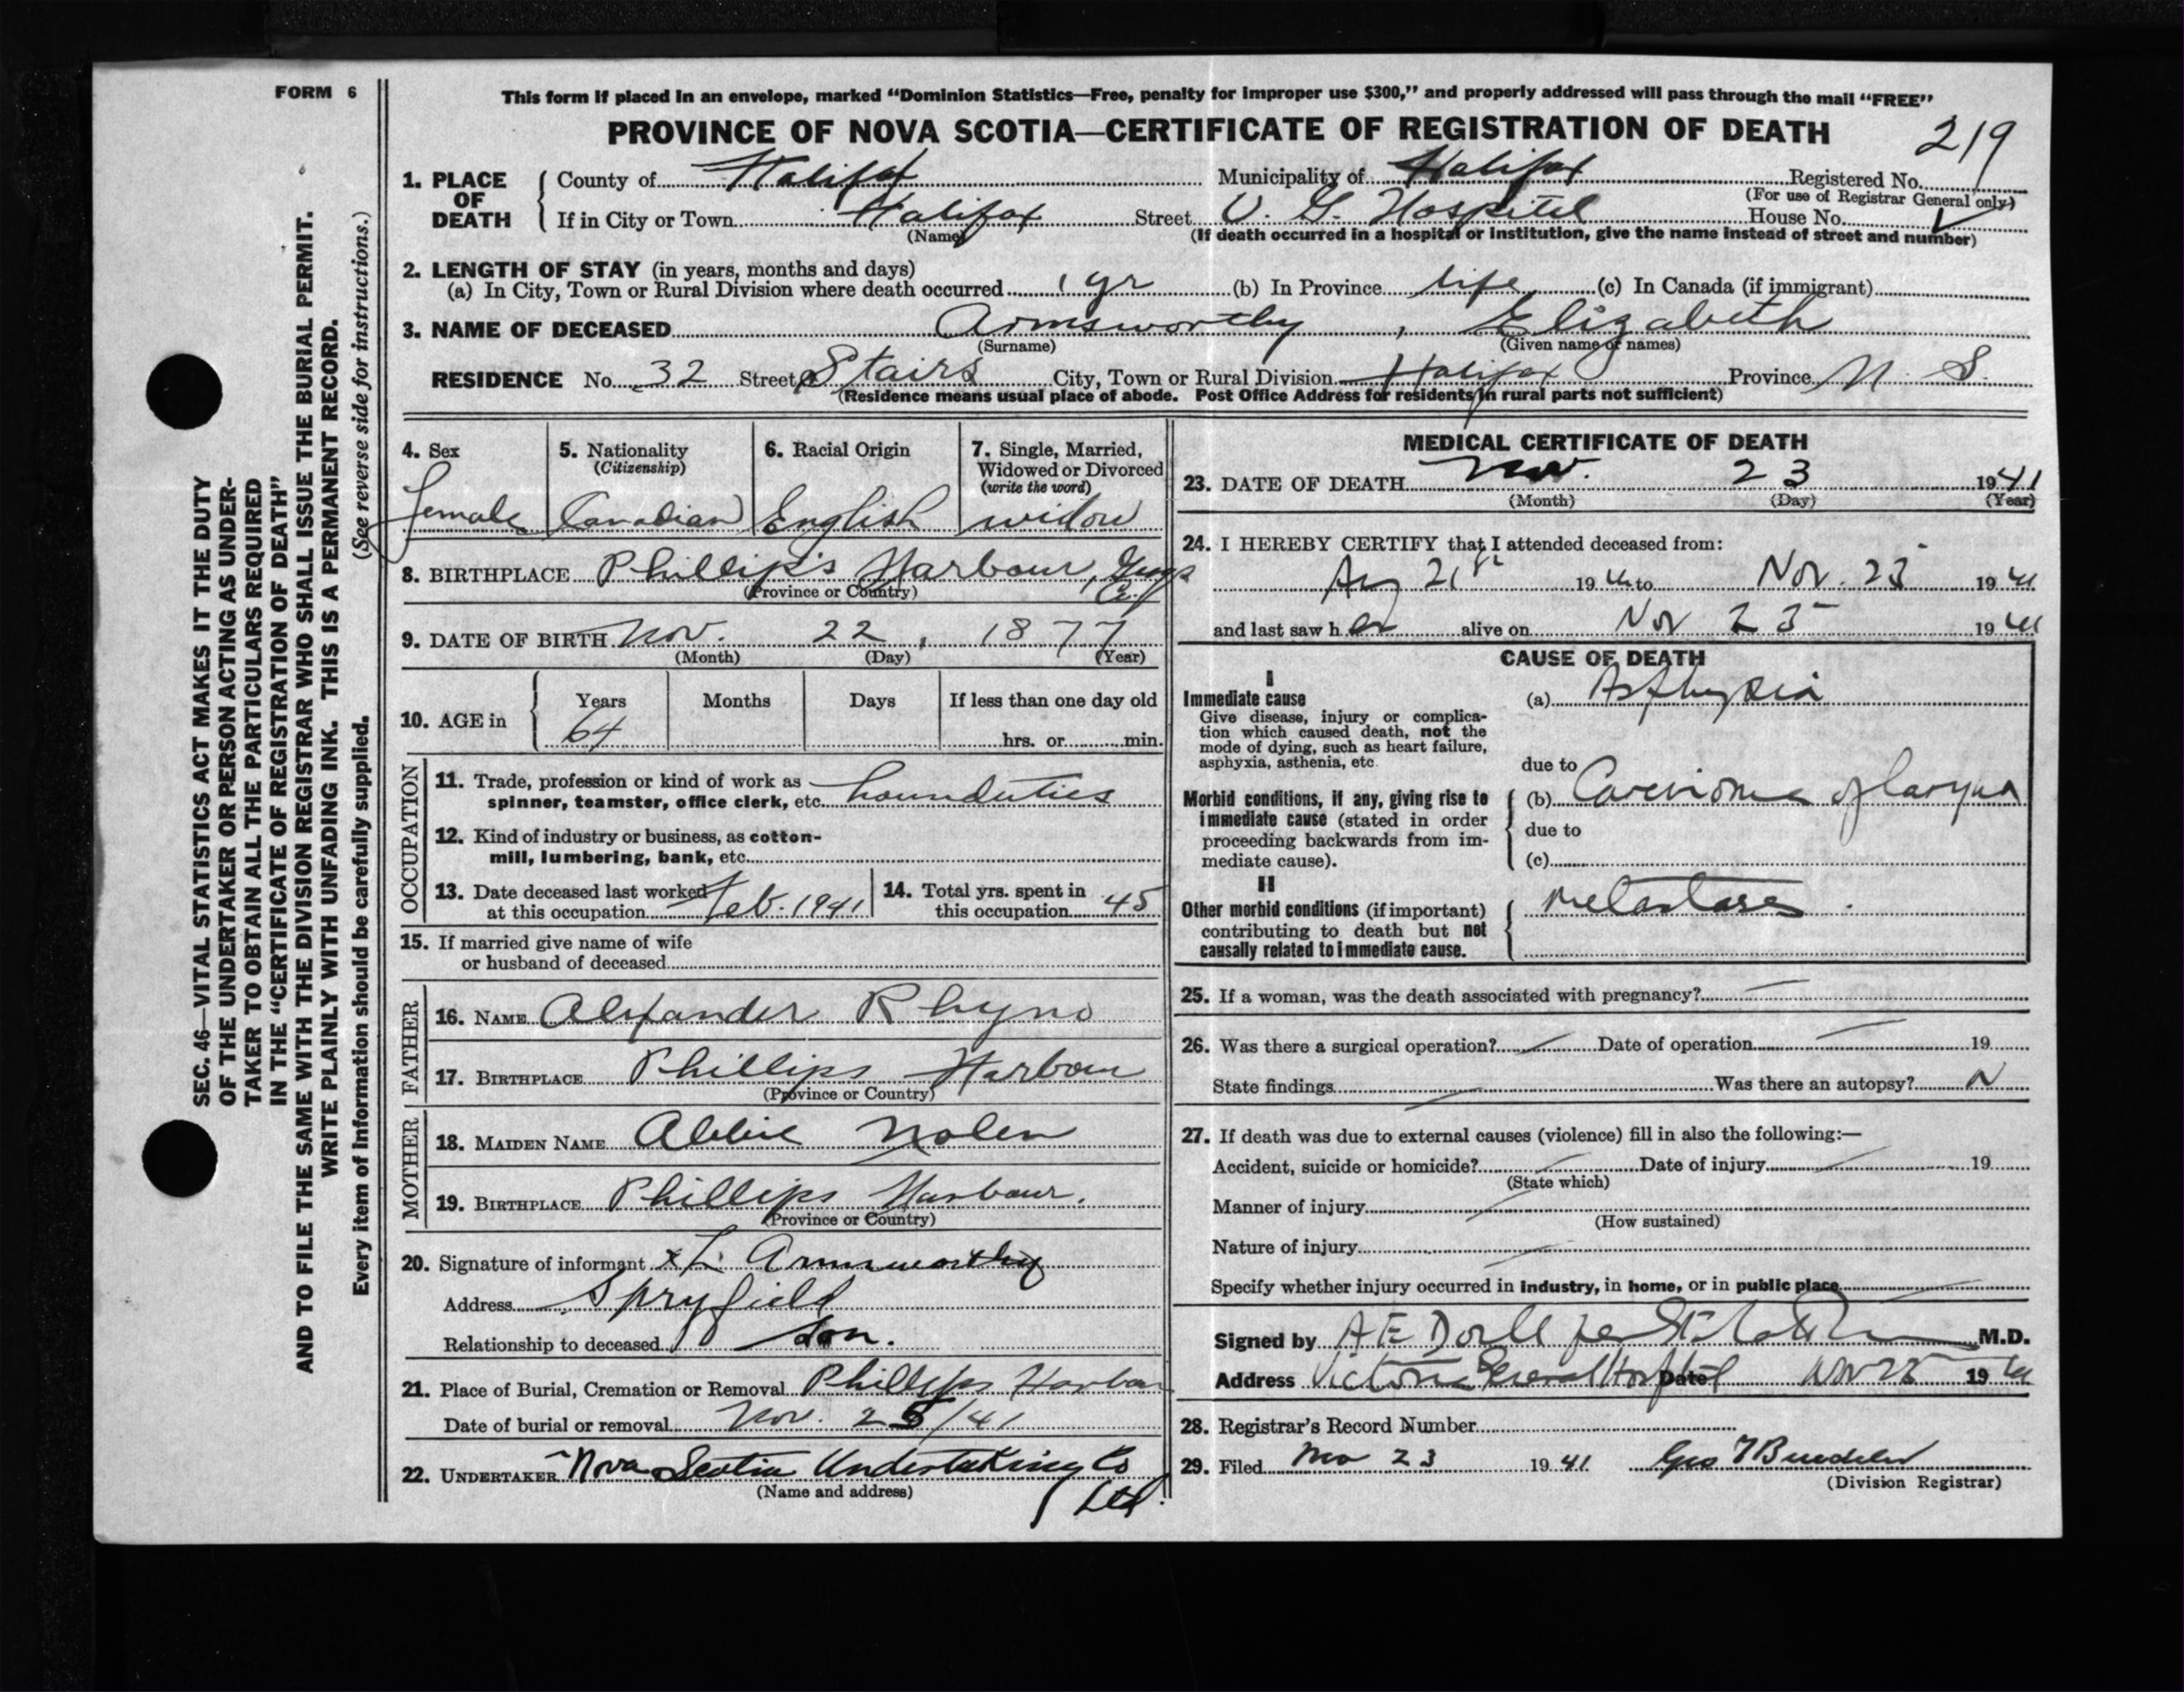 FORM 6
This form if placed in an envelope, marked "Dominion Statistics—Free, penalty for improper use $300," and properly addressed will pass through the mail "FREE"
PROVINCE OF NOVA SCOTIA—CERTIFICATE OF REGISTRATION OF DEATH
219
1. PLACE OF DEATH
County of Halifax Municipality of Halifax Registered No.
(For use of Registrar General only)
If in City or Town Halifax Street V. G. Hospital House No.
(Name) (If death occurred in a hospital or institution, give the name instead of street and number)
2. LENGTH OF STAY (in years, months and days)
(a) In City, Town or Rural Division where death occurred 1 yr (b) In Province life (c) In Canada (if immigrant)
3. NAME OF DECEASED Armsworthy, Elizabeth
(Surname) (Given name or names)
RESIDENCE No. 32 Street Stairs City, Town or Rural Division Halifax Province N. S.
(Residence means usual place of abode. Post Office Address for residents in rural parts not sufficient)
4. Sex
female
5. Nationality
(Citizenship)
Canadian
6. Racial Origin
English
7. Single, Married,
Widowed or Divorced
(write the word)
widow
8. BIRTHPLACE Phillip's Harbour, Guys Co.
(Province or Country)
9. DATE OF BIRTH Nov. 22, 1877
(Month) (Day) (Year)
10. AGE in
Years Months Days If less than one day old
64 hrs. or min.
OCCUPATION
11. Trade, profession or kind of work as
spinner, teamster, office clerk, etc. houseduties
12. Kind of industry or business, as cotton-
mill, lumbering, bank, etc.
13. Date deceased last worked
at this occupation Feb. 1941
14. Total yrs. spent in
this occupation 45
15. If married give name of wife
or husband of deceased
FATHER
16. NAME Alexander Rhyno
17. BIRTHPLACE Phillips Harbour
(Province or Country)
MOTHER
18. MAIDEN NAME Abbie Nolen
19. BIRTHPLACE Phillips Harbour.
(Province or Country)
20. Signature of informant x L. Armsworthy
Address Spryfield
Relationship to deceased son.
21. Place of Burial, Cremation or Removal Phillips Harbour
Date of burial or removal Nov. 25/41
22. UNDERTAKER Nova Scotia Undertaking Co Ltd.
(Name and address)
MEDICAL CERTIFICATE OF DEATH
23. DATE OF DEATH Nov. 23 1941
(Month) (Day) (Year)
24. I HEREBY CERTIFY that I attended deceased from:
Aug 21st 1941 to Nov. 23 1941
and last saw her alive on Nov 23 1941
CAUSE OF DEATH
I
Immediate cause
Give disease, injury or complica-
tion which caused death, not the
mode of dying, such as heart failure,
asphyxia, asthenia, etc.
(a) Asphyxia
due to
Morbid conditions, if any, giving rise to
immediate cause (stated in order
proceeding backwards from im-
mediate cause).
(b) Carcinoma of larynx
due to
(c)
II
Other morbid conditions (if important)
contributing to death but not
causally related to immediate cause.
Metastases.
25. If a woman, was the death associated with pregnancy? —
26. Was there a surgical operation? Date of operation 19
State findings Was there an autopsy? N
27. If death was due to external causes (violence) fill in also the following:—
Accident, suicide or homicide? Date of injury 19
(State which)
Manner of injury
(How sustained)
Nature of injury
Specify whether injury occurred in industry, in home, or in public place
Signed by A E Doull per M.D.
Address Victoria General Hospital Date Nov 1941
28. Registrar's Record Number
29. Filed Nov 23 1941 Geo
(Division Registrar)
SEC. 46—VITAL STATISTICS ACT MAKES IT THE DUTY
OF THE UNDERTAKER OR PERSON ACTING AS UNDER-
TAKER TO OBTAIN ALL THE PARTICULARS REQUIRED
IN THE "CERTIFICATE OF REGISTRATION OF DEATH"
AND TO FILE THE SAME WITH THE DIVISION REGISTRAR WHO SHALL ISSUE THE BURIAL PERMIT.
WRITE PLAINLY WITH UNFADING INK. THIS IS A PERMANENT RECORD.
Every item of information should be carefully supplied. (See reverse side for instructions.)